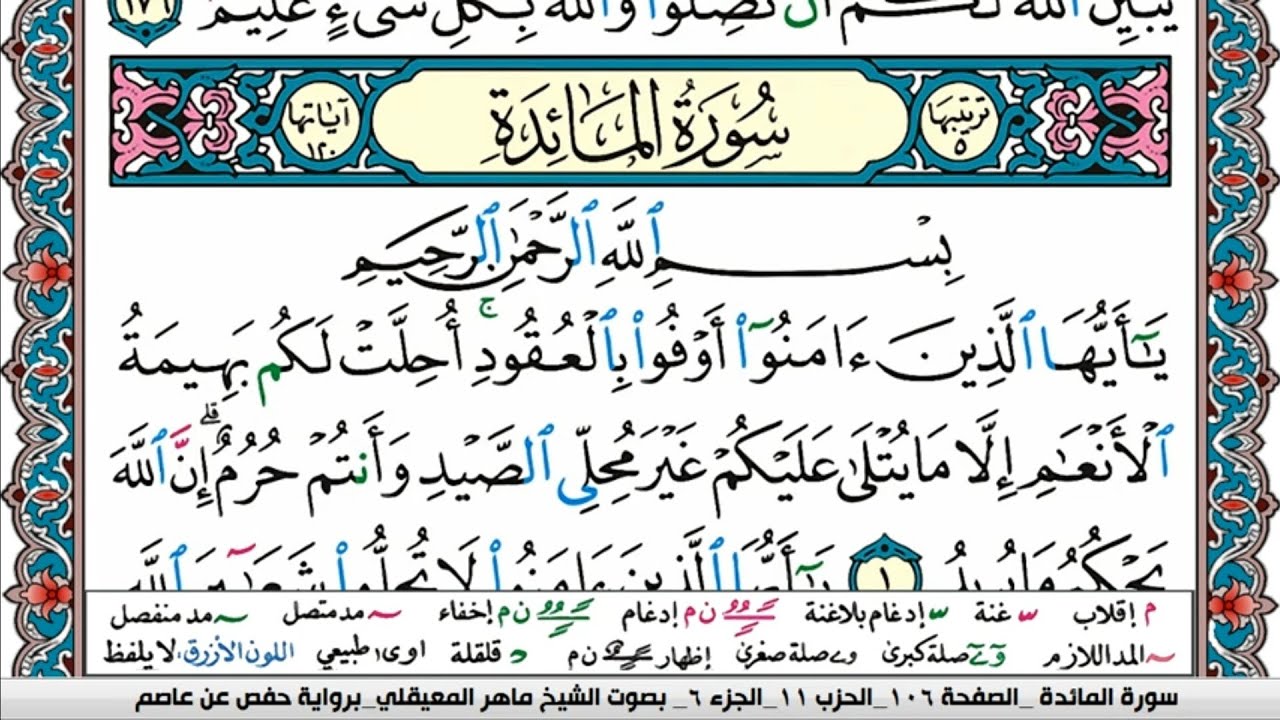 يُبَيِّنُ ٱللَّهُ لَكُمْ أَن تَضِلُّوا۟ وَٱللَّهُ بِكُلِّ شَىْءٍ عَلِيمٌ ١٧٦
ترتيبها ٥ سُورَةُ المَائِدَةِ آياتها ١٢٠
بِسْمِ ٱللَّهِ ٱلرَّحْمَٰنِ ٱلرَّحِيمِ
يَٰٓأَيُّهَا ٱلَّذِينَ ءَامَنُوٓا۟ أَوْفُوا۟ بِٱلْعُقُودِ ۚ أُحِلَّتْ لَكُم بَهِيمَةُ
ٱلْأَنْعَٰمِ إِلَّا مَا يُتْلَىٰ عَلَيْكُمْ غَيْرَ مُحِلِّى ٱلصَّيْدِ وَأَنتُمْ حُرُمٌ ۗ إِنَّ ٱللَّهَ
يَحْكُمُ مَا يُرِيدُ ١ يَٰٓأَيُّهَا ٱلَّذِينَ ءَامَنُوا۟ لَا تُحِلُّوا۟ شَعَٰٓئِرَ ٱللَّهِ
م إقلاب ـّ غنة ـّ إدغام بلاغنة ن م إدغام ن م إخفاء ~ مد متصل ~ مد منفصل
~ المد اللازم صلة كبرىٰ صلة صغرىٰ إظهار ن م د قلقلة اوى ا طبيعي اللون الأزرق، لا يلفظ
سورة المائدة _الصفحة ١٠٦_الحزب ١١_الجزء ٦_ بصوت الشيخ ماهر المعيقلي_برواية حفص عن عاصم